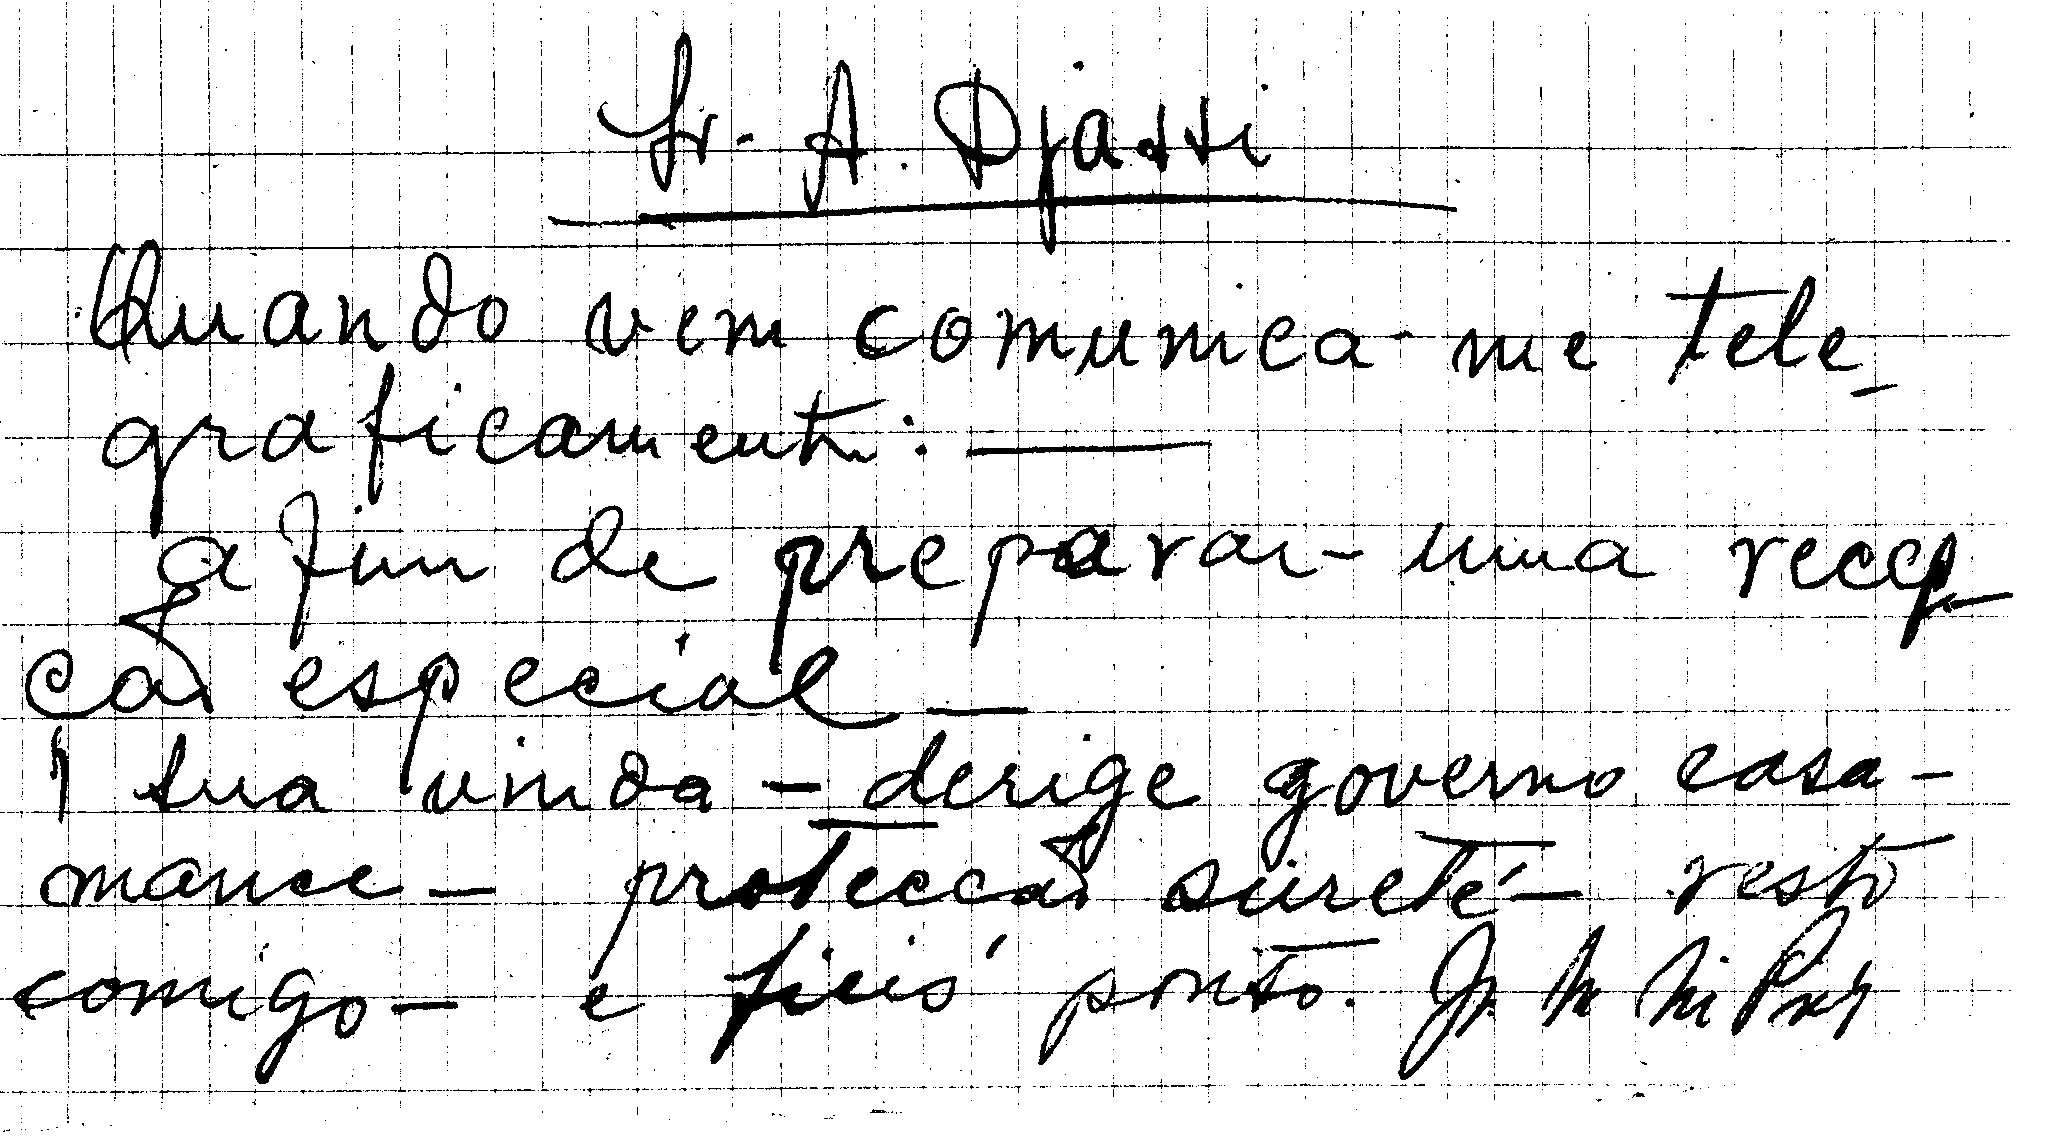 Sr. A. Djassi
Quando vem comunica-me tele-
graficamente: —
a fim de preparar-uma recep-
ção especial —
sua vinda – derige governo casa-
mance — protecção sûreté — resto
comigo — e fieis ponto.